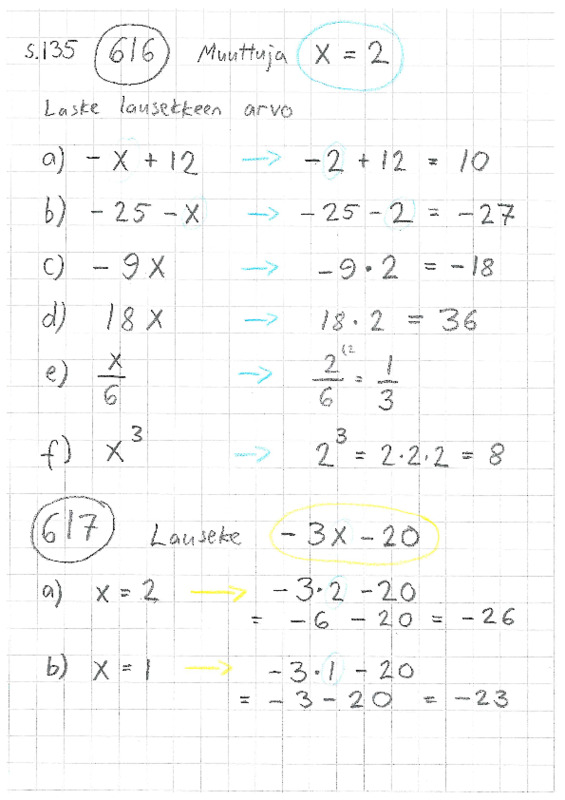 s.135 616 Muuttuja x = 2
Laske lausekkeen arvo
a) -x + 12 → -2 + 12 = 10
b) -25 - x → -25 - 2 = -27
c) -9x → -9 · 2 = -18
d) 18x → 18 · 2 = 36
e) x/6 → 2/6 (2 = 1/3
f) x³ → 2³ = 2·2·2 = 8
617 Lauseke -3x - 20
a) x = 2 → -3·2 - 20
= -6 - 20 = -26
b) x = 1 → -3·1 - 20
= -3 - 20 = -23